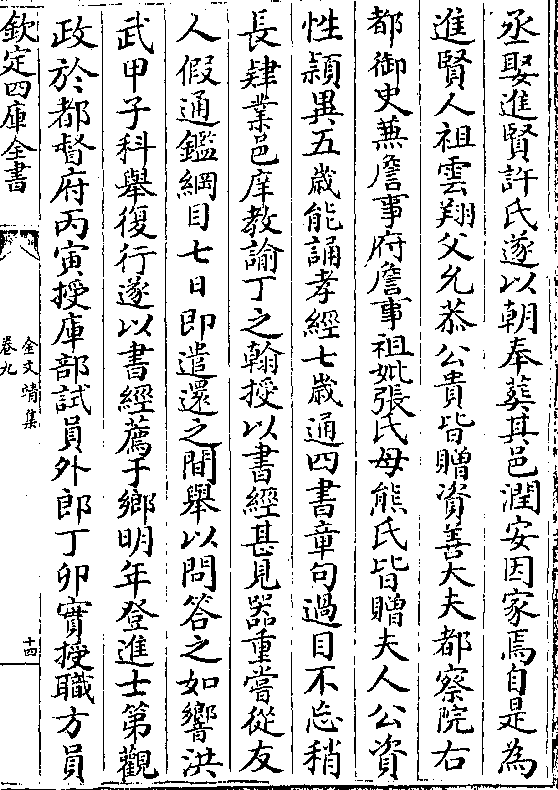 丞娶進賢許氏遂以朝奉葬其邑潤安因家焉自是為
進賢人祖雲翔父允恭公貴皆贈資善大夫都察院右
都御史兼詹事府詹事祖妣張氏母熊氏皆贈夫人公資
性頴異五歳能誦孝經七歳通四書章句過目不忘稍
長肄業邑庠教諭丁之翰授以書經甚見器重嘗從友
人假通鑑綱目七日即遣還之間舉以問答之如響洪
武甲子科舉復行遂以書經薦于鄉明年登進士第觀
政於都督府丙寅授庫部試員外郎丁卯實授職方員
欽定四庫全書
金文靖集
卷九
十四